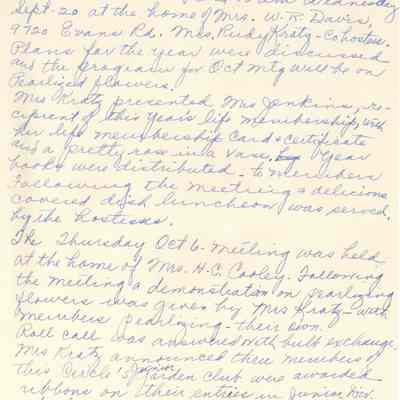 Wednesday
Sept. 20 at the home of Mrs. W. R. Davis,
9720 Evans Rd. Mrs. Rudy Kratz - Cohostess.
Plans for the year were discussed
and the program for Oct Mtg will be on
Pearlized flowers.
Mrs Kratz presented Mrs Jenkins, re-
cipient of this years life membership, with
her life membership card & certificate
and a pretty rose in a vase. Year
books were distributed - to members
Following the meeting a delicious
covered dish luncheon was served,
by the hostesses.
The Thursday Oct 6 - meeting was held
at the home of Mrs. H. C. Cooley - Following
the meeting a demonstration on pearlizing
flowers was given by Mrs Kratz - with
members pearlizing - their own.
Roll call was answered with bulb exchange.
Mrs Kratz announced three members of
this Circle's Junior Garden club were awarded
ribbons on their entries in Junior Div.